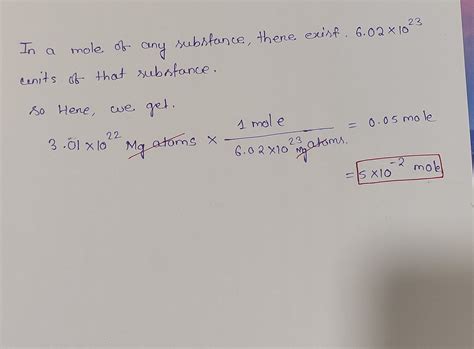 In a mole of any substance, there exist. 6.02×10²³
units of that substance.
So Here, we get.
3.01×10²² Mg atoms × 1 mole / 6.02×10²³ Mg atoms. = 0.05 mole
= 5×10⁻² mole